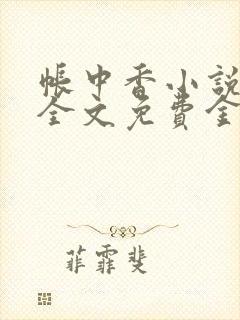 帐中香小說
全文免費全
菲霏斐